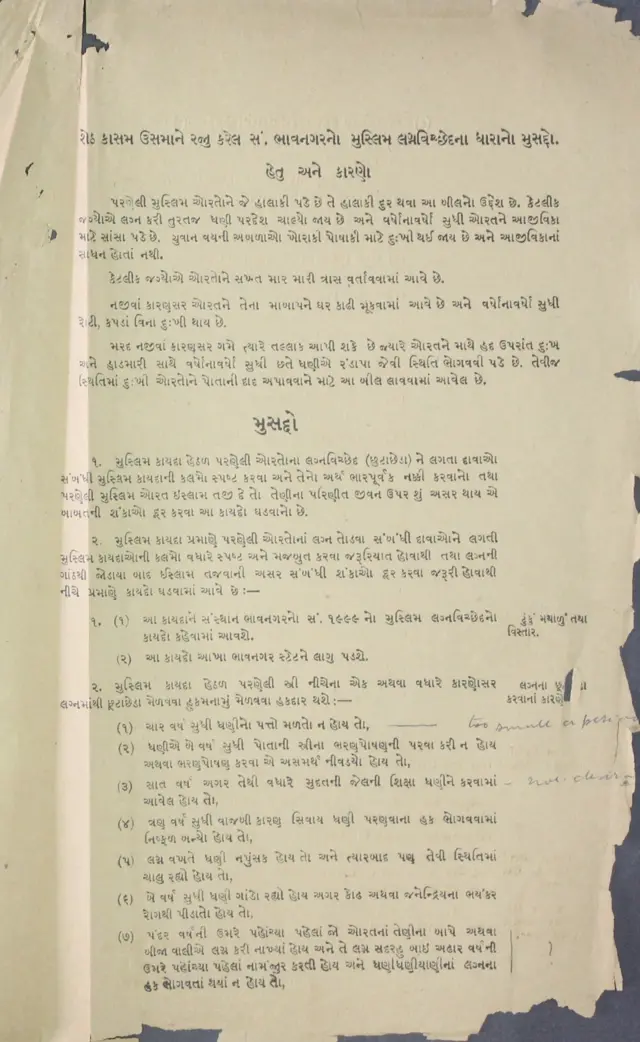 શેઠ કાસમ ઉસમાને રજુ કરેલ સં. ભાવનગરનો મુસ્લિમ લગ્નવિચ્છેદના ધારાનો મુસદ્દો.
હેતુ અને કારણો
પરણેલી મુસ્લિમ ઓરતોને જે હાલાકી પડે છે તે હાલાકી દુર થવા આ બીલનો ઉદ્દેશ છે. કેટલીક
જગ્યોએ લગ્ન કરી તુરતજ ધણી પરદેશ ચાલ્યો જાય છે અને વર્ષોનાવર્ષો સુધી ઓરતને આજીવિકા
માટે સાંસા પડે છે. યુવાન વયની અબળાઓ ખોરાકી પોષાકી માટે દુઃખી થઈ જાય છે અને આજીવિકાનાં
સાધન હોતાં નથી.
કેટલીક જગ્યોએ ઓરતોને સખત માર મારી ત્રાસ વર્તાવવામાં આવે છે.
નજીવાં કારણસર ઓરતને તેના માબાપને ઘર કાઢી મૂકવામાં આવે છે અને વર્ષોનાવર્ષો સુધી
રોટી, કપડાં વિના દુઃખી થાય છે.
મરદ નજીવાં કારણસર ગમે ત્યારે તલ્લાક આપી શકે છે જ્યારે ઓરતને માથે હદ ઉપરાંત દુઃખ
અને હાડમારી સાથે વર્ષોનાવર્ષો સુધી છતે ધણીએ રંડાપા જેવી સ્થિતિ ભોગવવી પડે છે. તેવીજ
સ્થિતિમાં દુઃખી ઓરતોને પોતાની દાદ અપાવવાને માટે આ બીલ લાવવામાં આવેલ છે.
મુસદ્દો
૧. મુસ્લિમ કાયદા હેઠળ પરણેલી ઓરતોના લગ્નવિચ્છેદ (છુટાછેડા) ને લગતા દાવાઓ
સંબંધી મુસ્લિમ કાયદાની કલમો સ્પષ્ટ કરવા અને તેનો અર્થ ભારપૂર્વક નક્કી કરવાનો તથા
પરણેલી મુસ્લિમ ઓરત ઇસ્લામ તજી દે તો તેણીના પરિણીત જીવન ઉપર શું અસર થાય એ
બાબતની શંકાઓ દૂર કરવા આ કાયદો ઘડવાનો છે.
૨. મુસ્લિમ કાયદા પ્રમાણે પરણેલી ઓરતોનાં લગ્ન તોડવા સંબંધી દાવાઓને લગતી
મુસ્લિમ કાયદાઓની કલમો વધારે સ્પષ્ટ અને મજબુત કરવા જરૂરિયાત હોવાથી તથા લગ્નની
ગાંઠથી જોડાયા બાદ ઈસ્લામ તજવાની અસર સંબંધી શંકાઓ દૂર કરવા જરૂરી હોવાથી
નીચે પ્રમાણે કાયદો ઘડવામાં આવે છે:—
૧. (૧) આ કાયદાને સંસ્થાન ભાવનગરનો સં. ૧૯૯૯ નો મુસ્લિમ લગ્નવિચ્છેદનો ટુંકું મથાળું તથા
કાયદો કહેવામાં આવશે. વિસ્તાર.
(૨) આ કાયદો આખા ભાવનગર સ્ટેટને લાગુ પડશે.
૨. મુસ્લિમ કાયદા હેઠળ પરણેલી સ્ત્રી નીચેના એક અથવા વધારે કારણોસર લગ્નના
લગ્નમાંથી છૂટાછેડા મેળવવા હુકમનામું મેળવવા હકદાર થશે:— કરવાનાં
(૧) ચાર વર્ષ સુધી ધણીનો પત્તો મળતો ન હોય તો, —— too small a period
(૨) ધણીએ બે વર્ષ સુધી પોતાની સ્ત્રીના ભરણપોષણની પરવા કરી ન હોય
અથવા ભરણપોષણ કરવા એ અસમર્થ નીવડ્યો હોય તો,
(૩) સાત વર્ષ અગર તેથી વધારે મુદતની જેલની શિક્ષા ધણીને કરવામાં – not
આવેલ હોય તો,
(૪) ત્રણ વર્ષ સુધી વાજબી કારણ સિવાય ધણી પરણવાના હક ભોગવવામાં
નિષ્ફળ બન્યો હોય તો,
(૫) લગ્ન વખતે ધણી નપુંસક હોય તો અને ત્યારબાદ પણ તેવી સ્થિતિમાં
ચાલુ રહ્યો હોય તો,
(૬) બે વર્ષ સુધી ધણી ગાંડો રહ્યો હોય અગર કોઢ અથવા જનેન્દ્રિયના ભયંકર
રોગથી પીડાતો હોય તો,
(૭) પંદર વર્ષની ઉમરે પહોંચ્યા પહેલાં જો ઓરતનાં તેણીના બાપે અથવા
બીજા વાલીએ લગ્ન કરી નાખ્યાં હોય અને તે લગ્ન સદરહુ બાઈ અઢાર વર્ષની
ઉમરે પહોંચ્યા પહેલાં નામંજુર કરતી હોય અને ધણીધણીયાણીનાં લગ્નના
હક ભોગવતાં થયાં ન હોય તો,